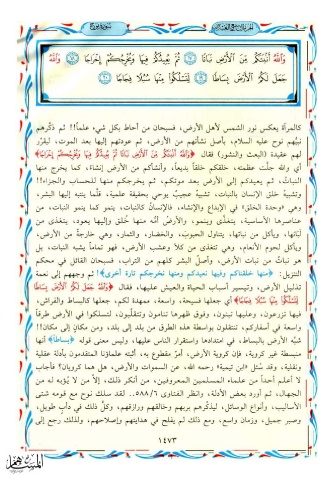 سورة نوح
وَاللَّهُ أَنْبَتَكُمْ مِنَ الْأَرْضِ نَبَاتًا ١٧ ثُمَّ يُعِيدُكُمْ فِيهَا وَيُخْرِجُكُمْ إِخْرَاجًا ١٨ وَاللَّهُ
جَعَلَ لَكُمُ الْأَرْضَ بِسَاطًا ١٩ لِتَسْلُكُوا مِنْهَا سُبُلًا فِجَاجًا ٢٠
كالمرآة يعكس نور الشمس لأهل الأرض، فسبحان من أحاط بكل شيء علماً!! ثم ذكّرهم
نبيّهم نوح عليه السلام، بأصل نشأتهم من الأرض، ثم عودتهم إليها بعد الموت، ليقرّر
لهم عقيدة (البعث والنشور) فقال ﴿وَاللَّهُ أَنْبَتَكُمْ مِنَ الْأَرْضِ نَبَاتًا ثُمَّ يُعِيدُكُمْ فِيهَا وَيُخْرِجُكُمْ إِخْرَاجًا﴾
أي والله جلّت عظمته، خلقكم خلقاً بديعاً، وأنشأكم من الأرض إنشاء، كما يخرج منها
النبات، ثم يعيدكم إلى الأرض بعد موتكم، ثم يخرجكم منها للحساب والجزاء!!
وتشبيه خلق الإنسان بالنبات، تشبيه عجيب يوحي بحقيقة علمية، قلّما يتنبه إليها البشر،
وهي (وحدة الخلق) في الإبداع والإنشاء، فالإنسان كالنبات، ينمو كما ينمو النبات، من
عناصرها الأساسية، يتغذّى وينمو، والأرض أمّه منها خُلق وإليها يعود، يتغذّى من
نباتها، ويأكل من نباتها، يتناول الحبوب، والخضار، والثمار، وهي خارجة من الأرض،
ويأكل لحوم الأنعام، وهي تتغذى من كلأ وعشب الأرض، فهو تماماً يشبه النبات، بل
هو نبات من نبات الأرض، وأصل البشر كلهم من التراب، فسبحان القائل في محكم
التنزيل: ﴿منها خلقناكم وفيها نعيدكم ومنها نخرجكم تارة أخرى﴾! ثم وجههم إلى نعمة
تذليل الأرض، وتيسير أسباب الحياة والعيش عليها، فقال ﴿وَاللَّهُ جَعَلَ لَكُمُ الْأَرْضَ بِسَاطًا
لِتَسْلُكُوا مِنْهَا سُبُلًا فِجَاجًا﴾ أي جعلها فسيحة، واسعة، ممهدة لكم، جعلها كالبساط والفراش،
فيها تزرعون، وعليها تبنون، وفوق ظهرها تنامون وتتقلّبون، لتسلكوا في الأرض طرقاً
واسعة في أسفاركم، تنتقلون بواسطة هذه الطرق من بلد إلى بلد، ومن مكان إلى مكان!!
شبّه الأرض بالبساط، في امتدادها واستقرار الناس عليها، وليس معنى قوله ﴿بساطاً﴾ أنها
منبسطة غير كروية، فإن كروية الأرض، أمر مقطوع به، أثبته علماؤنا المتقدمون بأدلة عقلية
ونقلية، وقد سُئل «ابن تيمية» رحمه الله، عن السموات والأرض، هل هما كرويان؟ فأجاب
لا أعلم أحداً من علماء المسلمين المعروفين، من أنكر ذلك، إلا من لا يُؤبه له من
الجهال، ثم أورد بعض الأدلة، وانظر الفتاوى ٥٨٨/٦.. لقد سلك نوح مع قومه شتى
الأساليب، وأنواع الوسائل، ليذكّرهم بربهم وخالقهم ورازقهم، وكلّ ذلك في دأب طويل،
وصبر جميل، وزمان واسع، ومع ذلك لم يفلح في هدايتهم وإصلاحهم، ولذلك رجع إلى
١٤٧٣